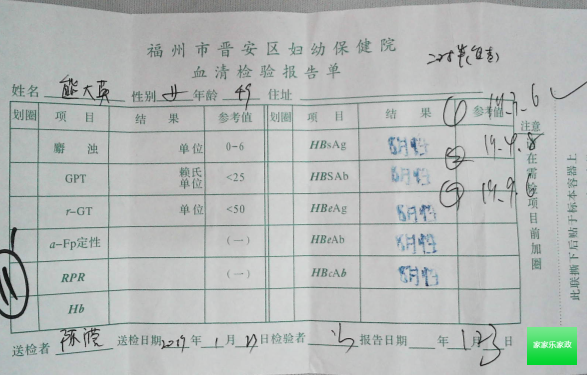 福州市晋安区妇幼保健院
血清检验报告单
姓名 熊大英 性别 女 年龄 49 住址
划圈 项目 结果 参考值 划圈 项目 结果 参考值
麝浊 单位 0-6 HBsAg 阴性
GPT 赖氏单位 <25 HBSAb 阴性
r-GT 单位 <50 HBeAg 阴性
a-Fp定性 (一) HBeAb 阴性
RPR (一) HBcAb 阴性
Hb
① 19.3.6
② 19.4.8
③ 19.9.6
注意
在需验项目前加圈
此联撕下后贴于标本容器上
送检者 送检日期2019年1月23日 检验者 报告日期 年1月23日
家家乐家欢